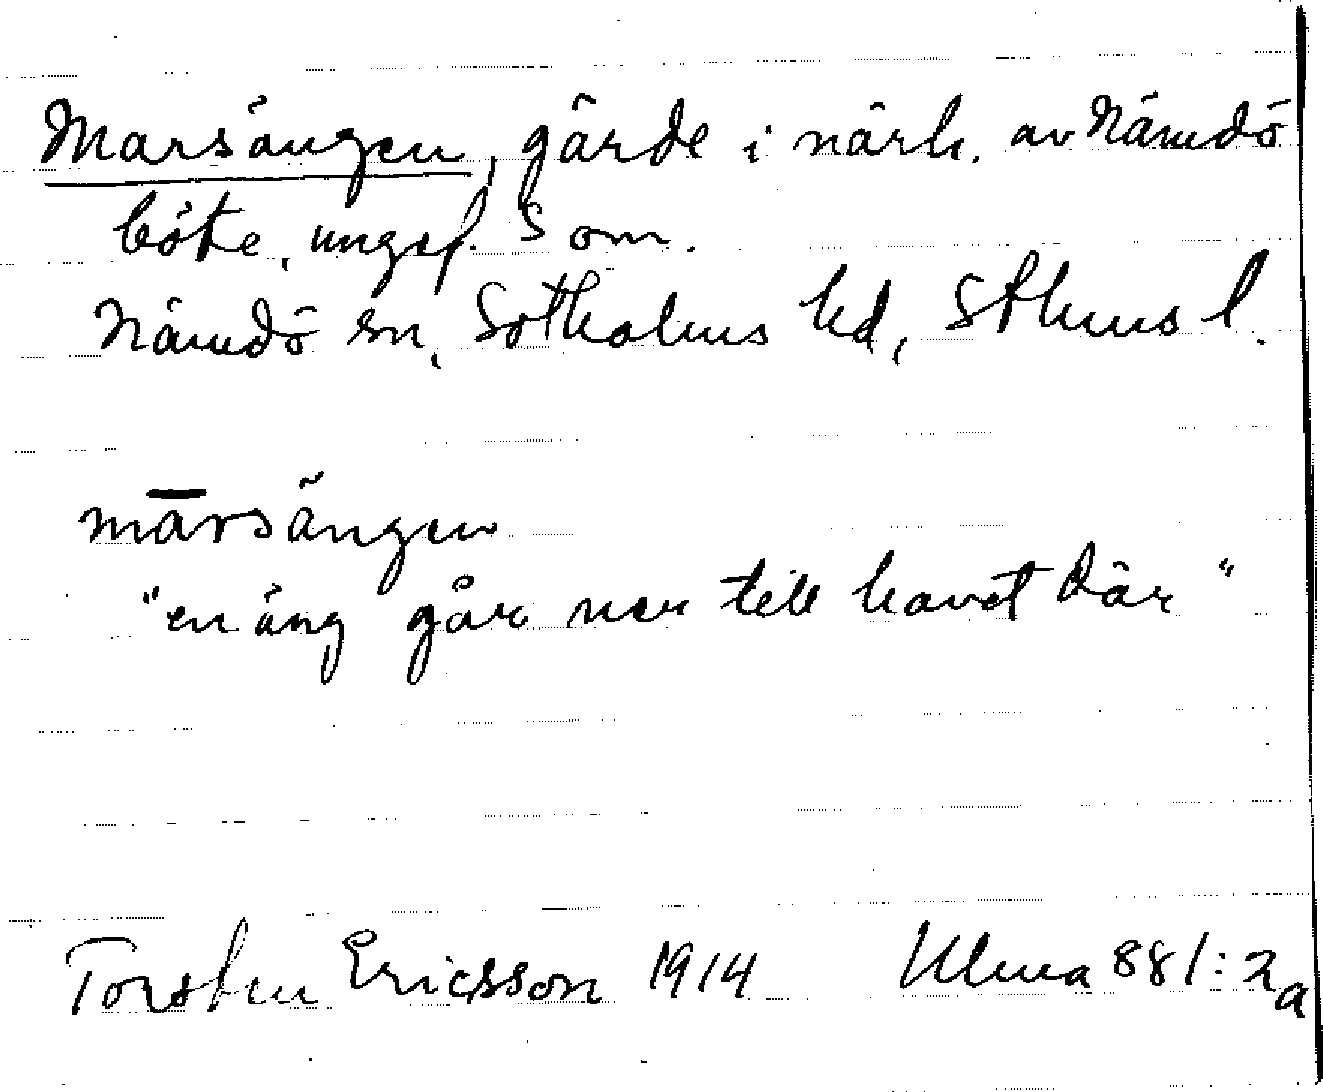 Marsängen, gärde i närh. av Nämdö
böte, ungef. S om.
Nämdö sn, Sotholms hd, Sthms l.
mārsängen
"en äng går ner till havet där"
Torsten Ericsson 1914 Ulma 881:2a